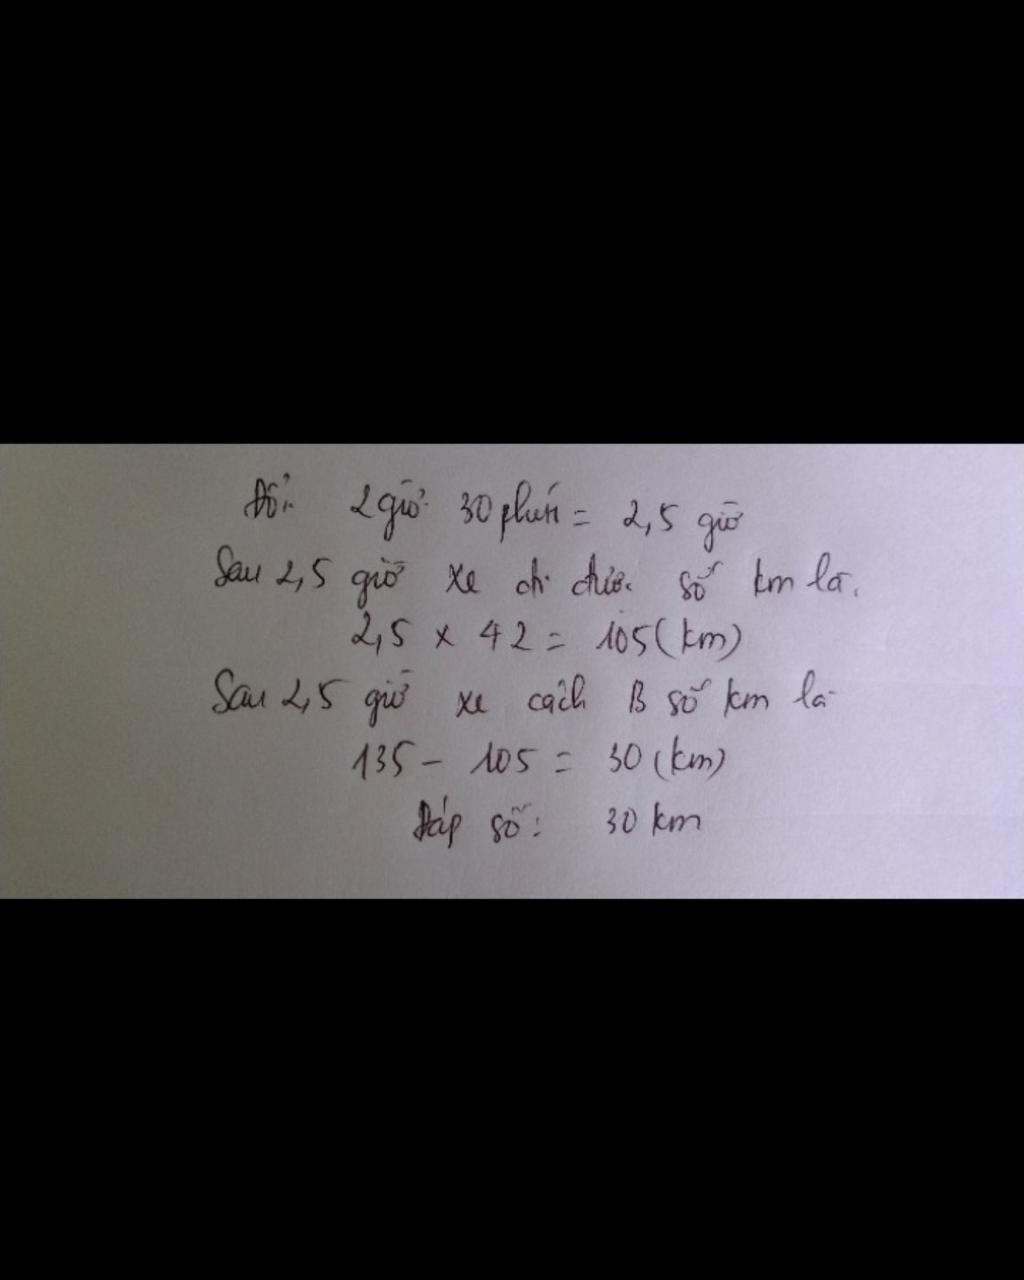 Đổi: 2 giờ 30 phút = 2,5 giờ
Sau 2,5 giờ xe đi được số km là:
2,5 x 42 = 105 (km)
Sau 2,5 giờ xe cách B số km là
135 - 105 = 30 (km)
Đáp số: 30 km